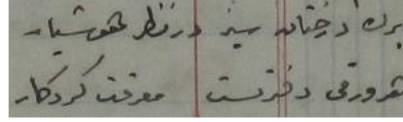 برک درختان سبز در نظر هوشیار
هر ورقی دفتریست معرفت کردکار